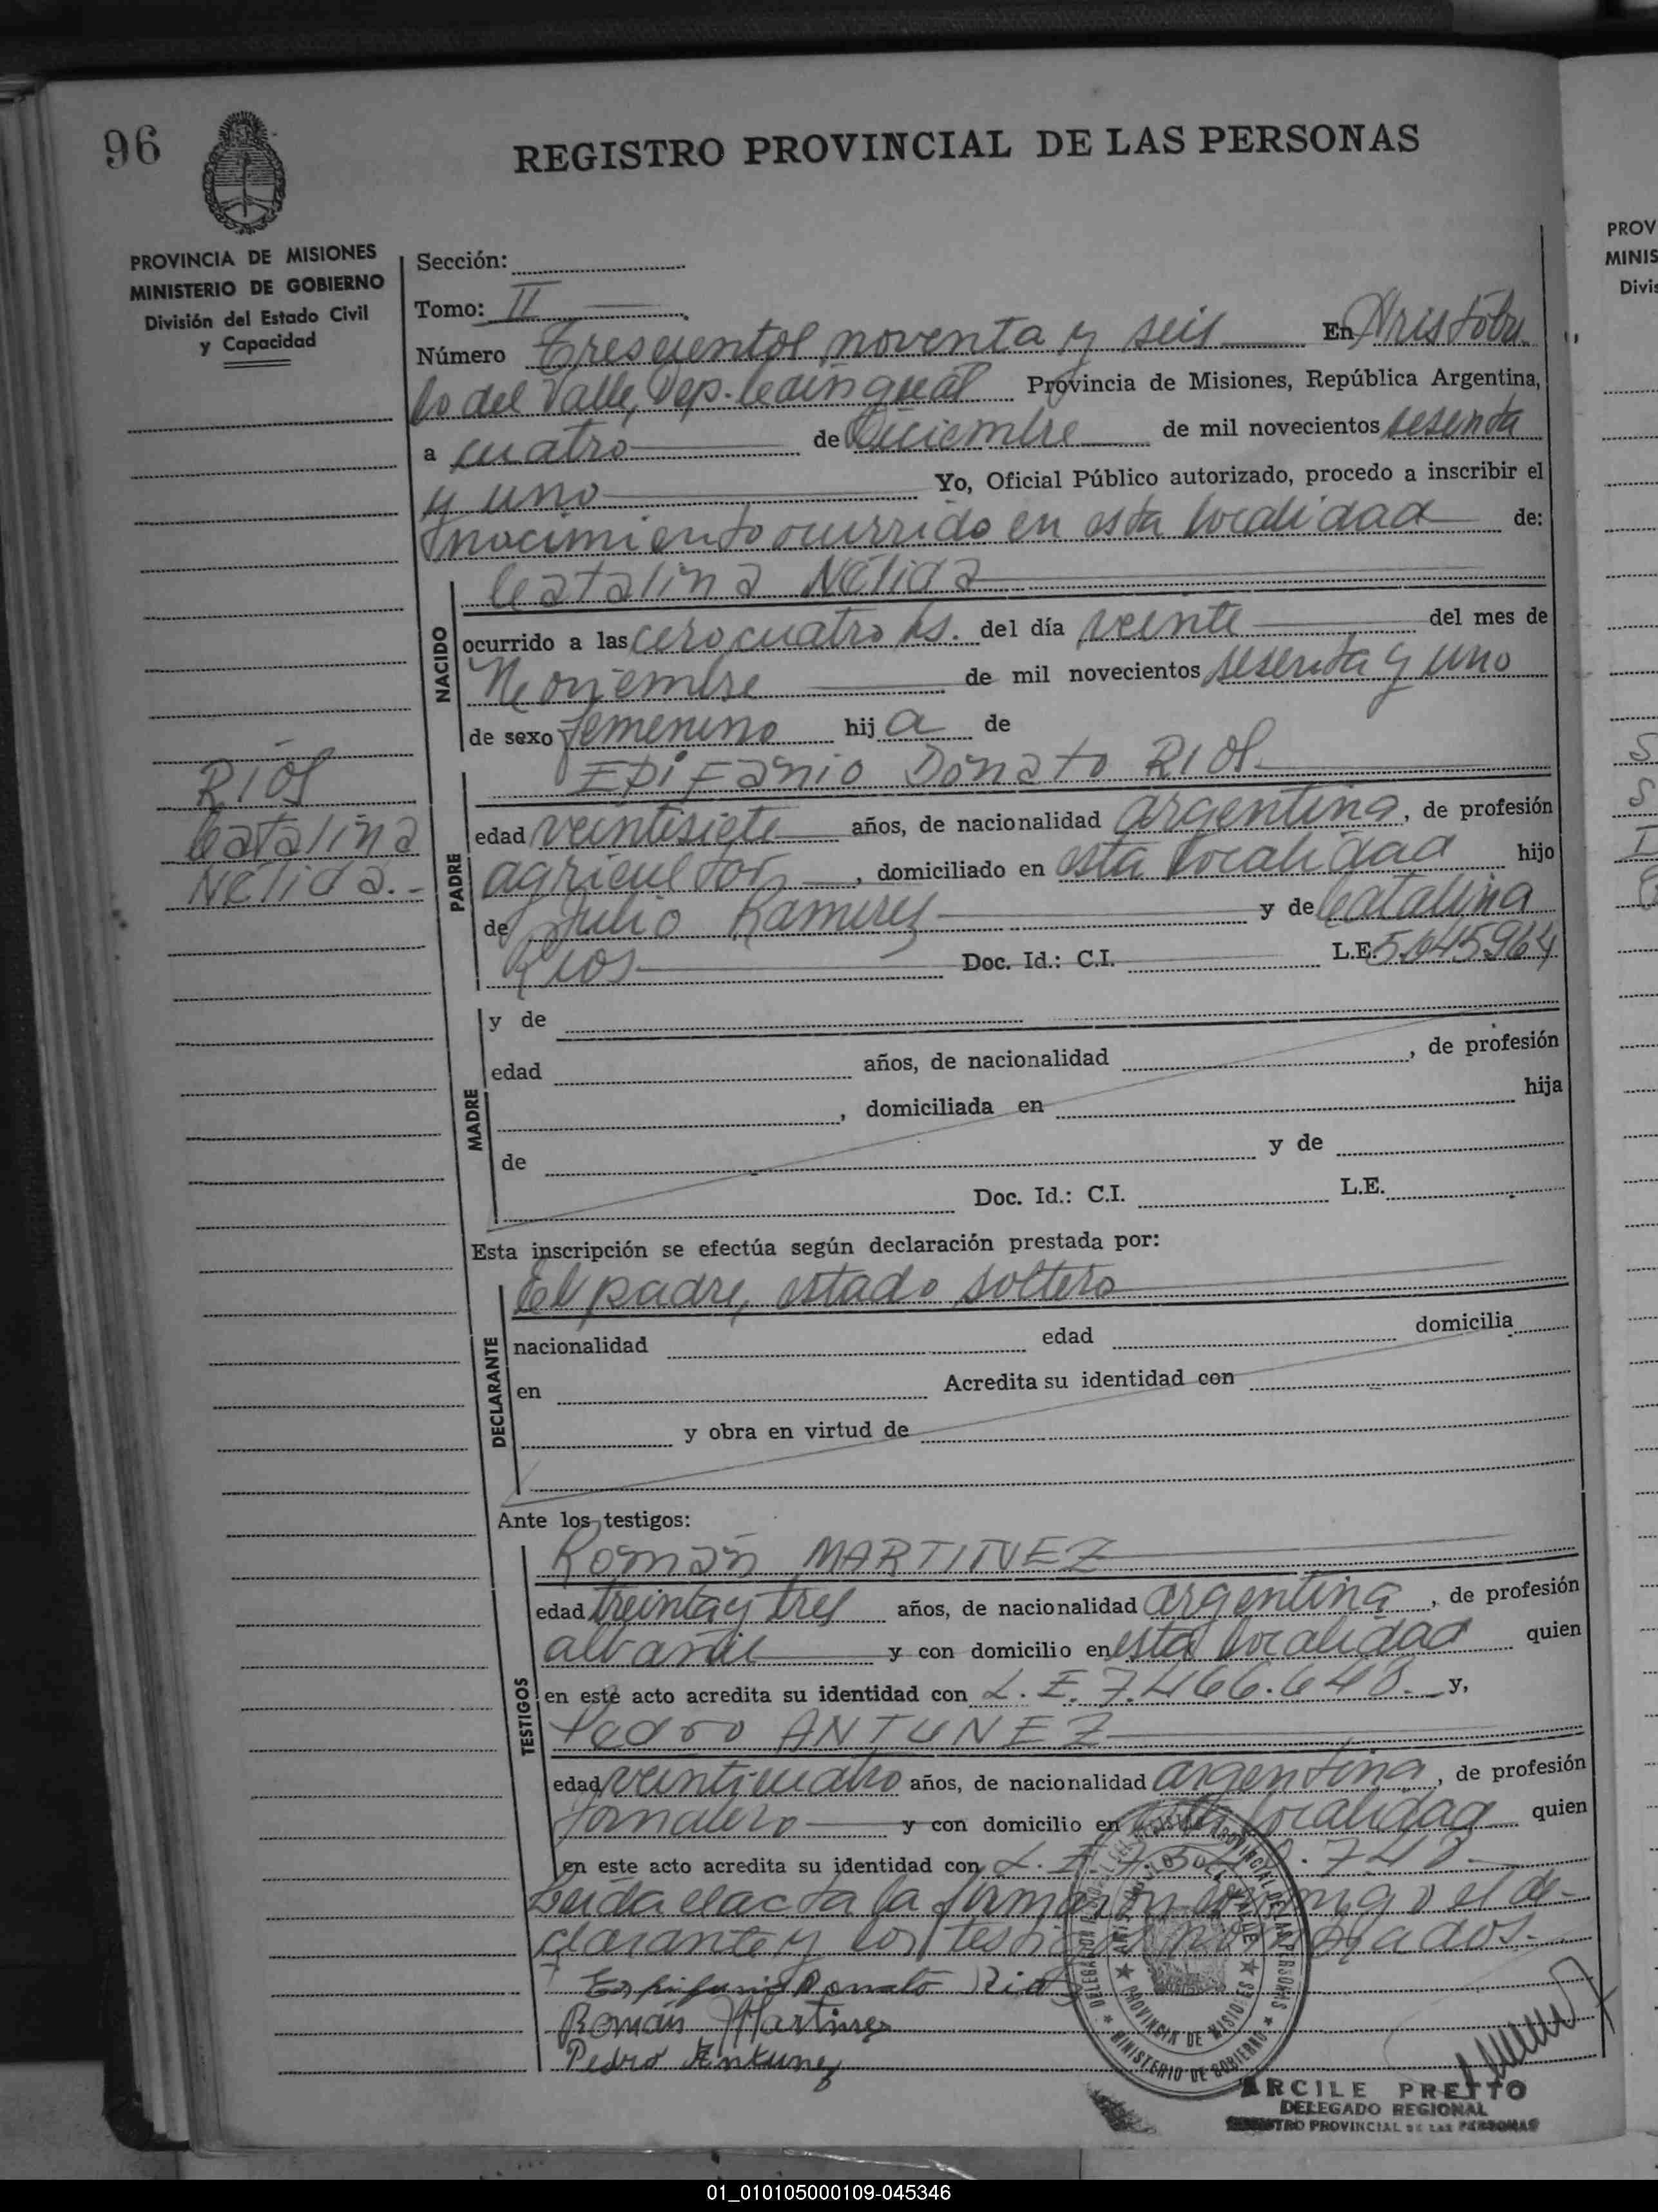 96
REGISTRO PROVINCIAL DE LAS PERSONAS
PROVINCIA DE MISIONES
MINISTERIO DE GOBIERNO
División del Estado Civil
y Capacidad
Sección:
Tomo: II
Número Trescientos noventa y seis En Aristóbu
lo del Valle, Dep. Cainguás Provincia de Misiones, República Argentina,
a cuatro de Diciembre de mil novecientos sesenta
y uno Yo, Oficial Público autorizado, procedo a inscribir el
nacimiento ocurrido en esta localidad de:
NACIDO
Catalina Nélida
ocurrido a las cero cuatro hs. del día veinte del mes de
Noviembre de mil novecientos sesenta y uno
de sexo femenino hij a de
RIOS
Catalina
Nélida.-
PADRE
Epifanio Donato RIOS
edad veintisiete años, de nacionalidad argentina, de profesión
agricultor, domiciliado en esta localidad hijo
de Julio Ramirez y de Catalina
Rios Doc. Id.: C.I. L.E. 5645964
MADRE
y de
edad años, de nacionalidad , de profesión
, domiciliada en hija
de y de
Doc. Id.: C.I. L.E.
Esta inscripción se efectúa según declaración prestada por:
DECLARANTE
El padre, estado soltero
nacionalidad edad domicilia
en Acredita su identidad con
y obra en virtud de
Ante los testigos:
TESTIGOS
Román MARTINEZ
edad treinta y tres años, de nacionalidad argentina, de profesión
albañil y con domicilio en esta localidad quien
en este acto acredita su identidad con L.E. 7.466.648. y,
Pedro ANTUNEZ
edad veinticuatro años, de nacionalidad argentina, de profesión
Jornalero y con domicilio en esta localidad quien
en este acto acredita su identidad con L.E.
Leida el acta la firman conmigo el de-
clarante y los testigos nombrados.-
Epifanio Donato Rios
Román Martinez
Pedro Antunez
DELEGACION REGISTRO PROVINCIAL DE LAS PERSONAS
ARISTOBULO DEL VALLE
PROVINCIA DE MISIONES
MINISTERIO DE GOBIERNO
ARCILE PRETTO
DELEGADO REGIONAL
REGISTRO PROVINCIAL DE LAS PERSONAS
PROV
MINIS
Divis
01_010105000109-045346